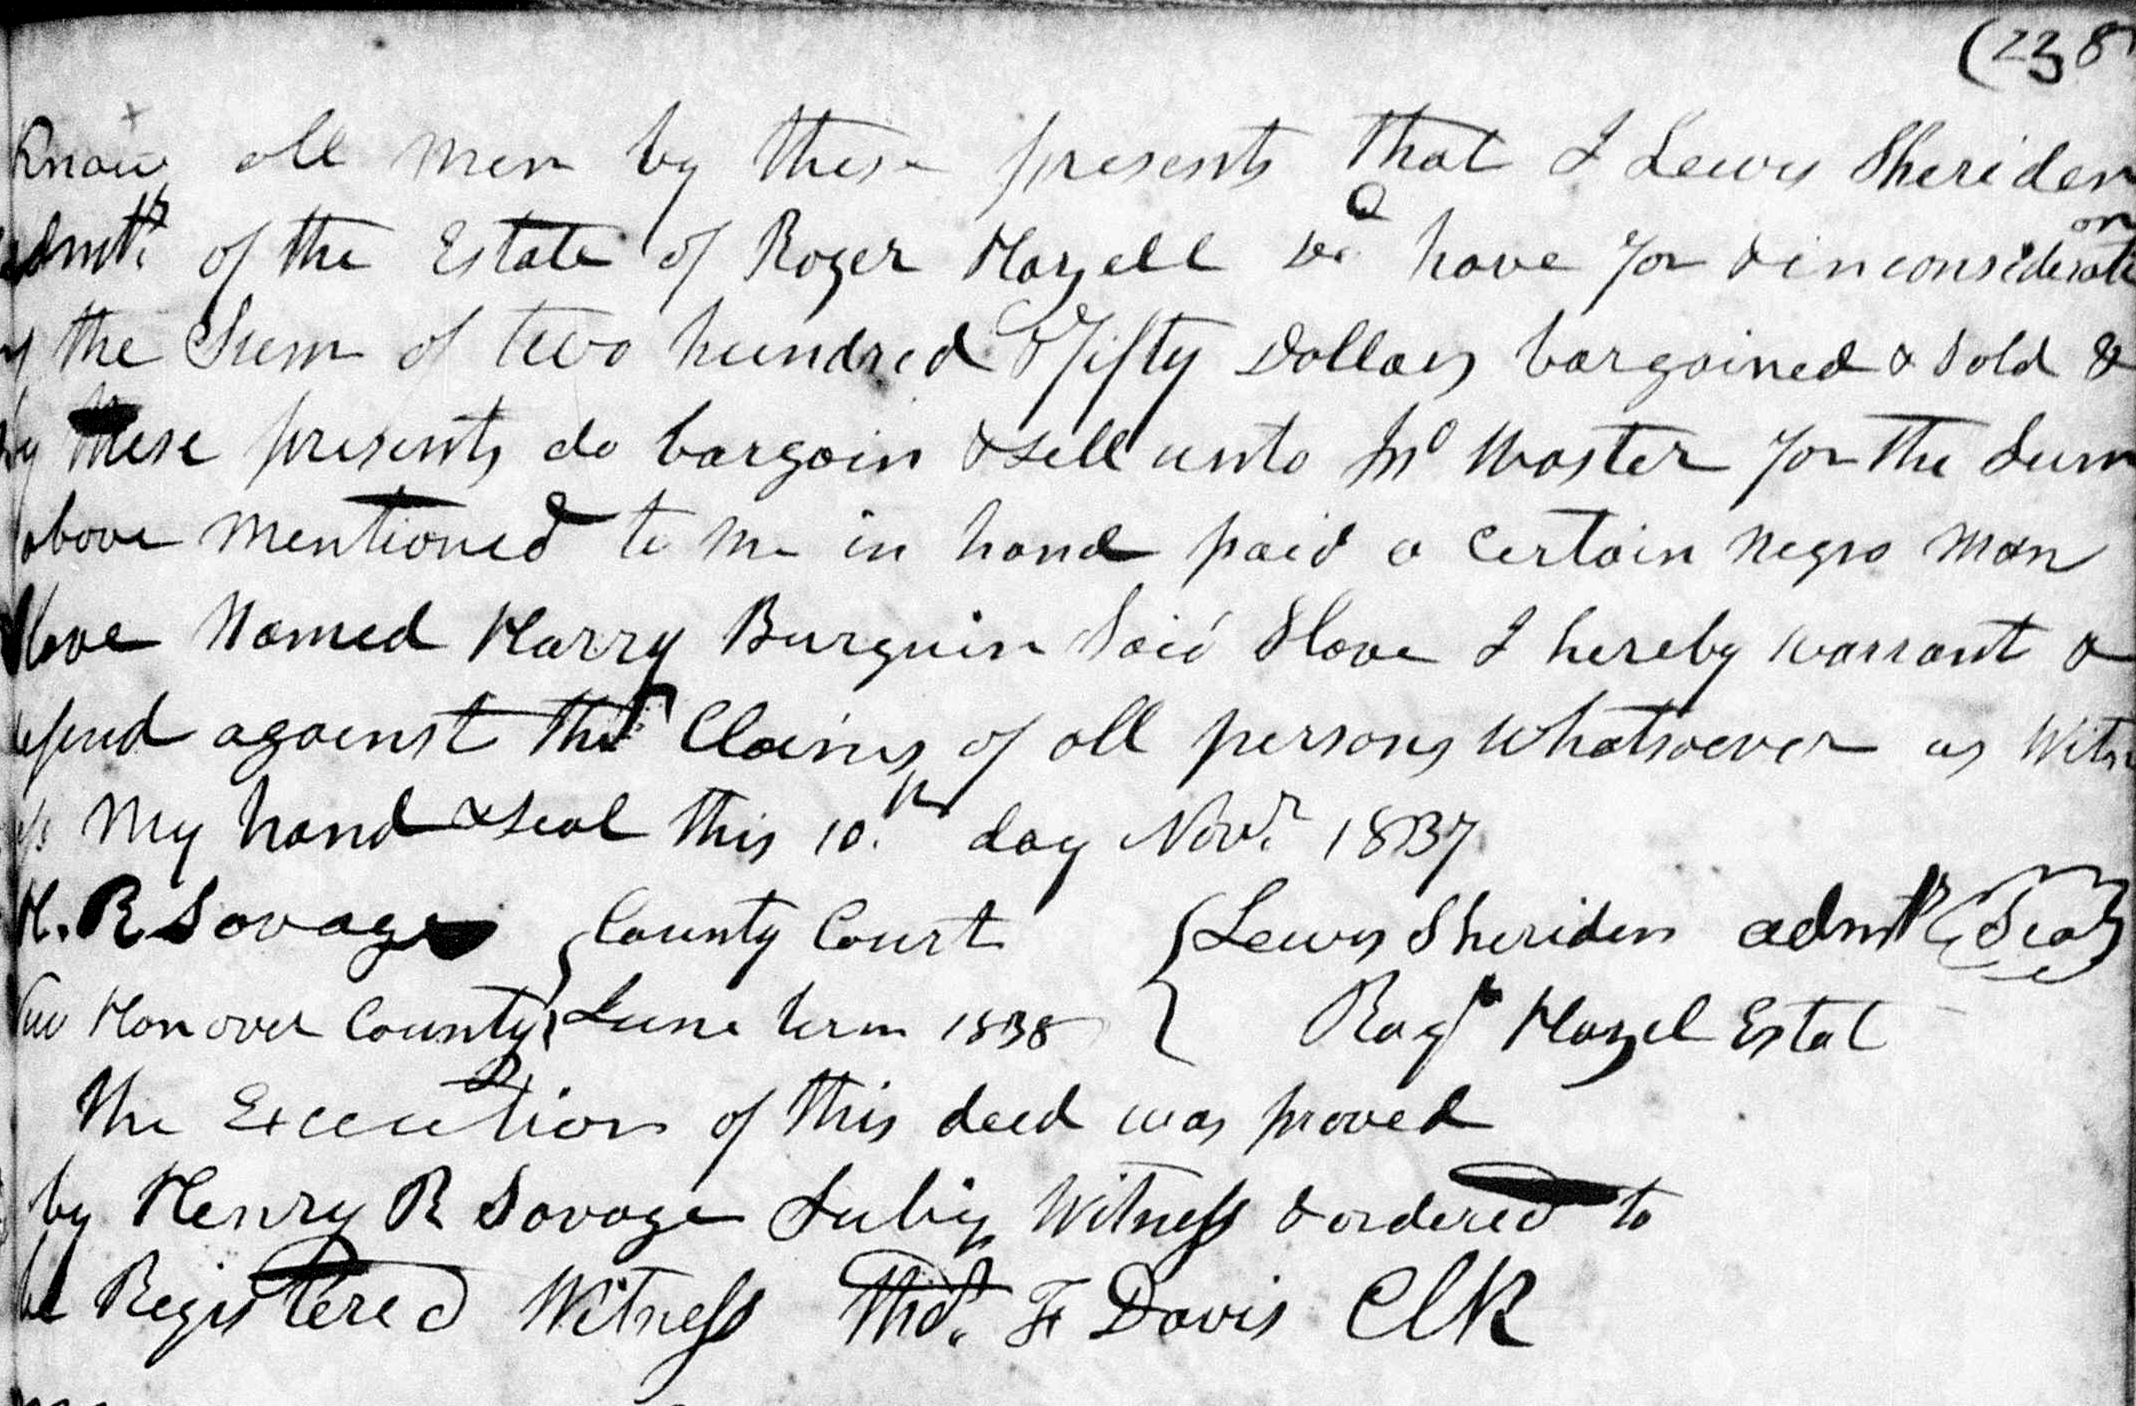 (238
Know all men by these presents that I Lewis Sheriden
admtr. of the Estate of Roger Hazell Decd have for & in consideration
of the Sum of two hundred & fifty Dollars bargained & sold &
by these presents do bargain & sell unto Jno Waster for the Sum
above mentioned to me in hand paid a certain negro man
Slave Named Harry Burguin Said Slave I hereby warrant &
defend against the Claims of all persons whatsoever as Witn
ess My hand & seal this 10.th day Novr. 1837
H. R Savage { County Court { Lewis Sheriden admtr (Seal)
New Hanover County } June term 1838 Rogr Hazel Estat
The Execution of this deed was proved
by Henry R Savage Subig Witness & ordered to
be Registered Witness Thos. F Davis Clk